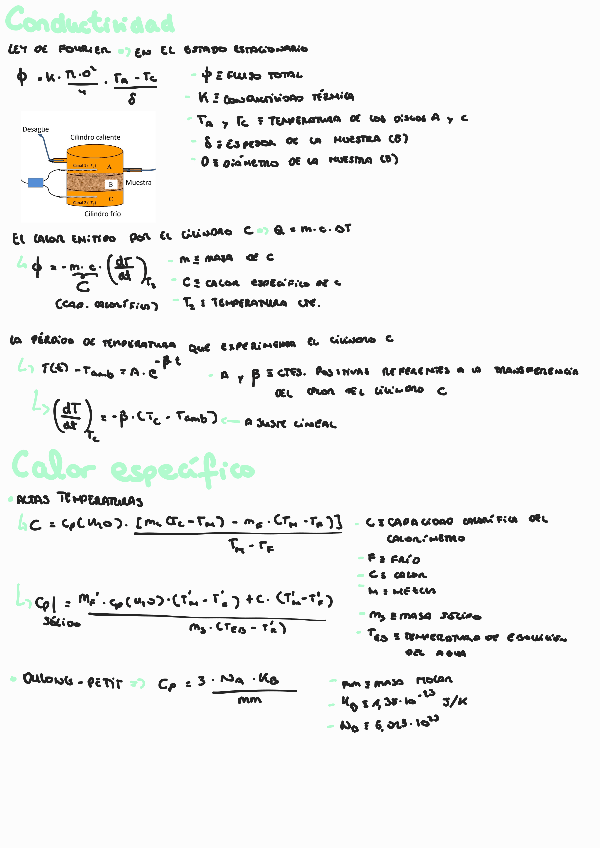 Conductividad
LEY DE FOURIER => EN EL ESTADO ESTACIONARIO
ϕ = K · π·D²/4 · (T_A - T_C)/δ
- ϕ ≡ FLUJO TOTAL
- K ≡ CONDUCTIVIDAD TÉRMICA
- T_A y T_C ≡ TEMPERATURA DE LOS DISCOS A y C
- δ ≡ ESPESOR DE LA MUESTRA (B)
- D ≡ DIÁMETRO DE LA MUESTRA (B)
Desague
Cilindro caliente
A
B
Muestra
Cilindro frío
EL CALOR EMITIDO POR EL CILINDRO C => Q = m·c·ΔT
ϕ = -m·c·(dT/dt)_T₂
C
(CAP. CALORÍFICA)
- m ≡ MASA DE C
- C ≡ CALOR ESPECÍFICO DE C
- T₂ ≡ TEMPERATURA CTE.
LA PÉRDIDA DE TEMPERATURA QUE EXPERIMENTA EL CILINDRO C
T(t) - Tamb = A·e^(-βt)
- A y β ≡ CTES. POSITIVAS REFERENTES A LA TRANSFERENCIA
DEL CALOR DEL CILINDRO C
(dT/dt)_Tc = -β·(T_C - Tamb) <- AJUSTE LINEAL
Calor específico
• ALTAS TEMPERATURAS
C = Cp(H₂O)·[m_C(T_C - T_M) - m_F·(T_M - T_F)]/(T_M - T_F)
- C ≡ CAPACIDAD CALORÍFICA DEL
CALORÍMETRO
- F ≡ FRÍO
- C ≡ CALOR
- M ≡ MEZCLA
Cp|SÓLIDO = (m_F'·Cp(H₂O)·(T'_M - T'_F) + C·(T'_M - T'_F))/(m_S·(T_EB - T'_F))
- m_S ≡ MASA SÓLIDO
- T_EB ≡ TEMPERATURA DE EBULLICIÓN
DEL AGUA
• DULONG-PETIT => Cp = 3·N_A·K_B/mm
- mm ≡ MASA MOLAR
- K_B ≡ 1,38·10⁻²³ J/K
- N_A ≡ 6,023·10²³